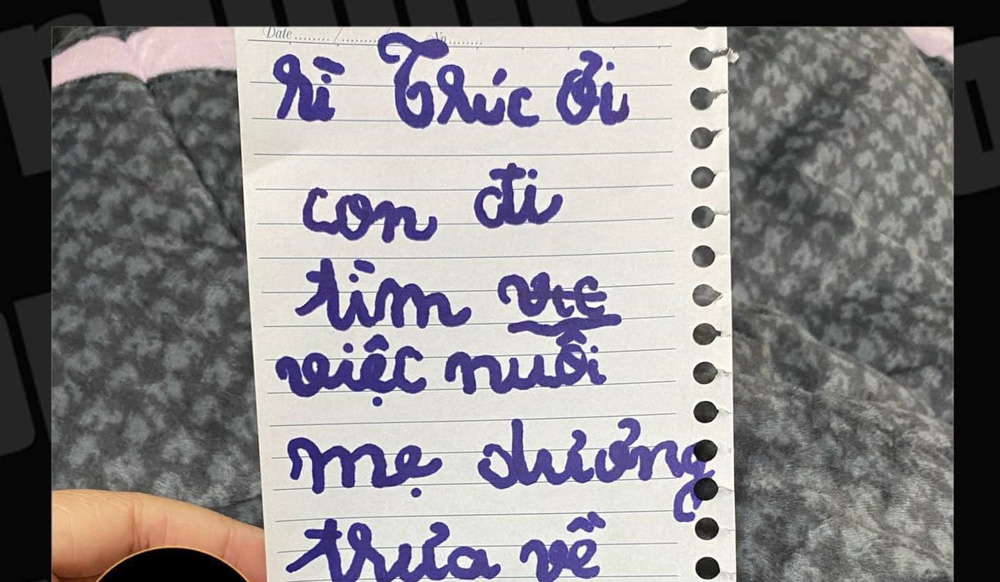 Date....../....... No.......
rì Trúc ơi
con đi
tìm
việc nuôi
mẹ dưởng
trưa về